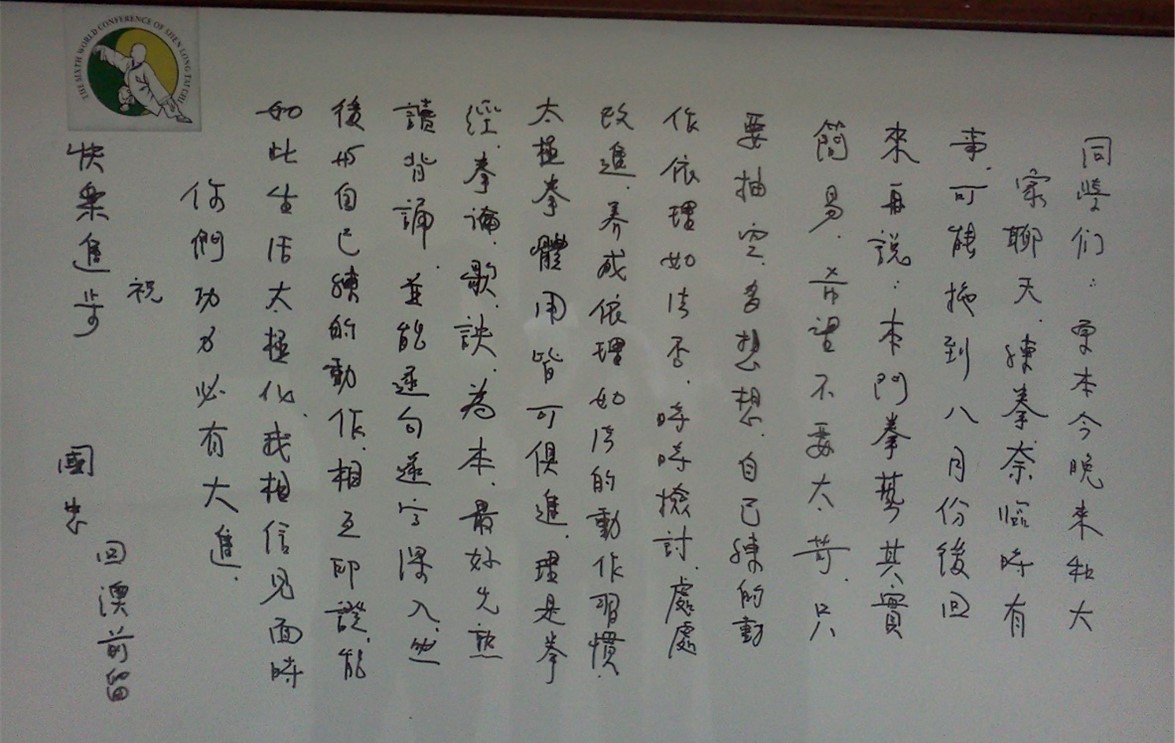 THE SIXTH WORLD CONFERENCE OF SHEN LONG TAI CHI
同學们：原本今晚來和大
家聊天、練拳奈臨時有
事、可能拖到八月份後回
來再說：本門拳势其實
簡易、希望不要太苛、只
要抽空、多想想、自己練的動
作依理如法否、時時檢討、處處
改進、养成依理如法的動作習慣、
太極拳體用皆可俱進、理是拳
經、拳論、歌、訣、為本、最好先熟
讀背誦、並能逐句逐字深入、然
後与自己練的動作、相互印證、能
如此生活太極化、我相信见面時
你們功力必有大進、
祝
快樂進步
國忠
回澳前留